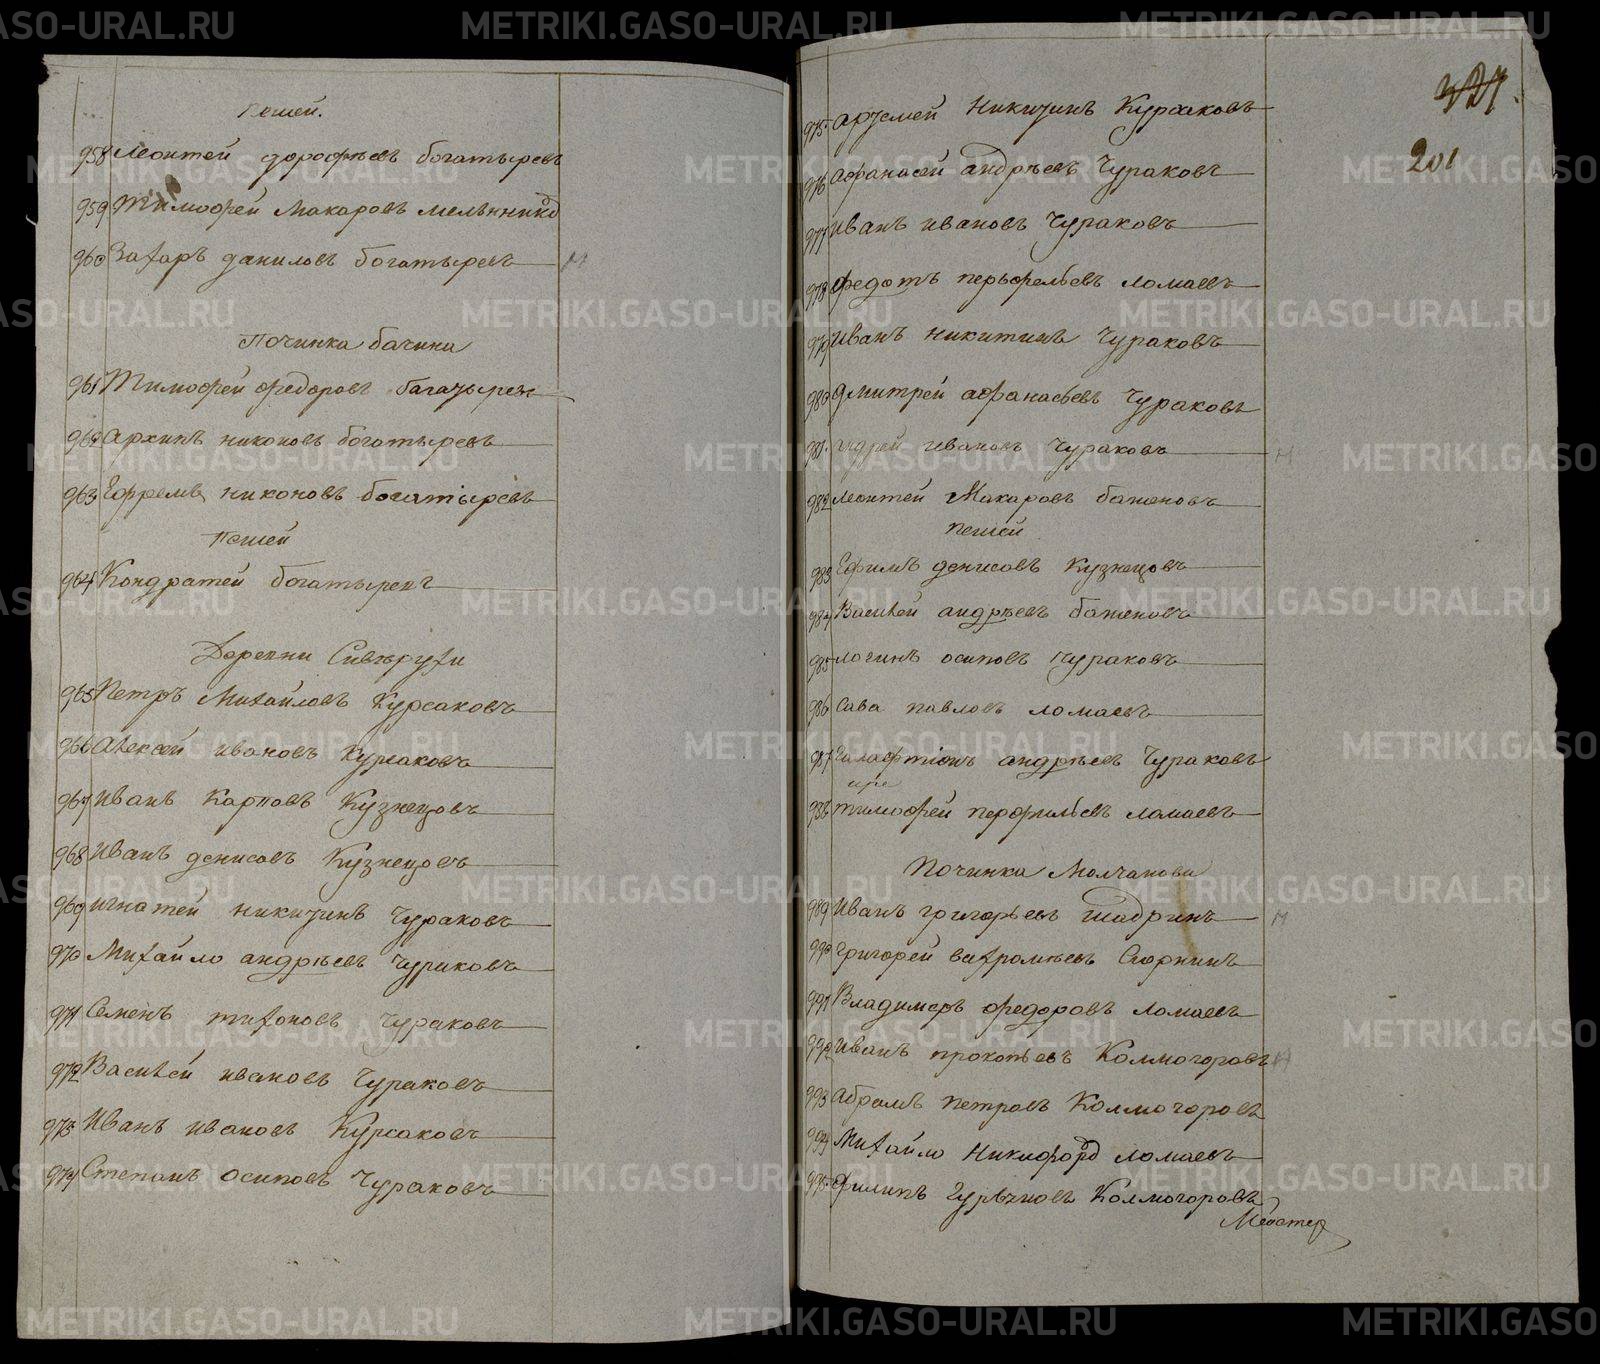 Пешей.
958 Леонтей дорофѣевъ богатыревъ
959 Тимофей Макаровъ мельников
960 Захаръ даниловъ богатыревъ
Починка бачина
961 Тимофей федоровъ багатырев
962 Архипъ никоновъ богатыревъ
963 Ефремъ никоновъ богатыревъ
Пешей
964 Кондратей богатыревъ
Деревни Сивѣрухи
965 Петръ Михайловъ Курсаковъ
966 Алексей ивановъ Курсаковъ
967 иванъ Карповъ Кузнецовъ
968 Иванъ денисовъ Кузнецовъ
969 игнатей никитинъ Чураковъ
970 Михайло андрѣевъ Чураковъ
971 Семенъ тихоновъ Чураковъ
972 Василей ивановъ Чураковъ
973 Иванъ ивановъ Курсаковъ
974 Степанъ осиповъ Чураковъ
321.
201
975 артемей Никитинъ Курсаковъ
976 афанасей андрѣевъ Чураковъ
977 иванъ ивановъ Чураковъ
978 федотъ перьфельевъ ломаевъ
979 Иванъ никитинъ Чураковъ
980 дмитрей афанасьевъ Чураковъ
981 андрей ивановъ Чураковъ
982 леонтей Макаровъ баженовъ
пешей
983 Ефимъ денисовъ Кузнецовъ
984 Василей андрѣевъ баженовъ
985 логинъ осиповъ Чураковъ
986 сава павловъ ломаевъ
987 галафтіонъ андрѣевъ Чураковъ
988 тимофей перфильевъ ломаевъ
Починка Молчанова
989 Иванъ григорьевъ шадринъ
990 григорей вахромѣевъ
991 Владимеръ федоровъ ломаевъ
992 иванъ прокопьевъ Колмогоровъ
993 абрамъ петровъ Колмогоровъ
994 Михайло Никифоров ломаевъ
995 филипъ Колмогоровъ